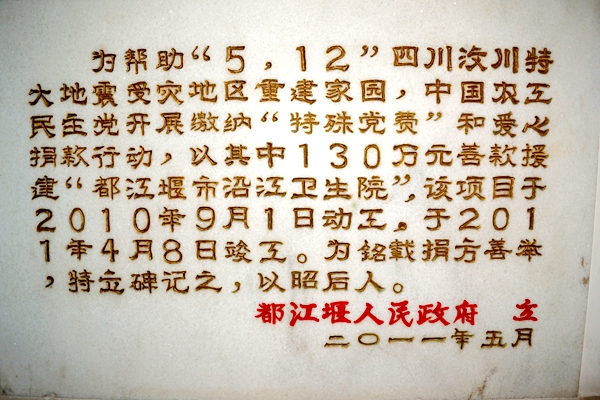 为帮助“5，12”四川汶川特
大地震受灾地区重建家园，中国农工
民主党开展缴纳“特殊党费”和爱心
捐款行动，以其中130万元善款援
建“都江堰市沿江卫生院”，该项目于
2010年9月1日动工。于201
1年4月8日竣工。为铭载捐方善举
，特立碑记之，以昭后人。
都江堰人民政府 立
二〇一一年五月